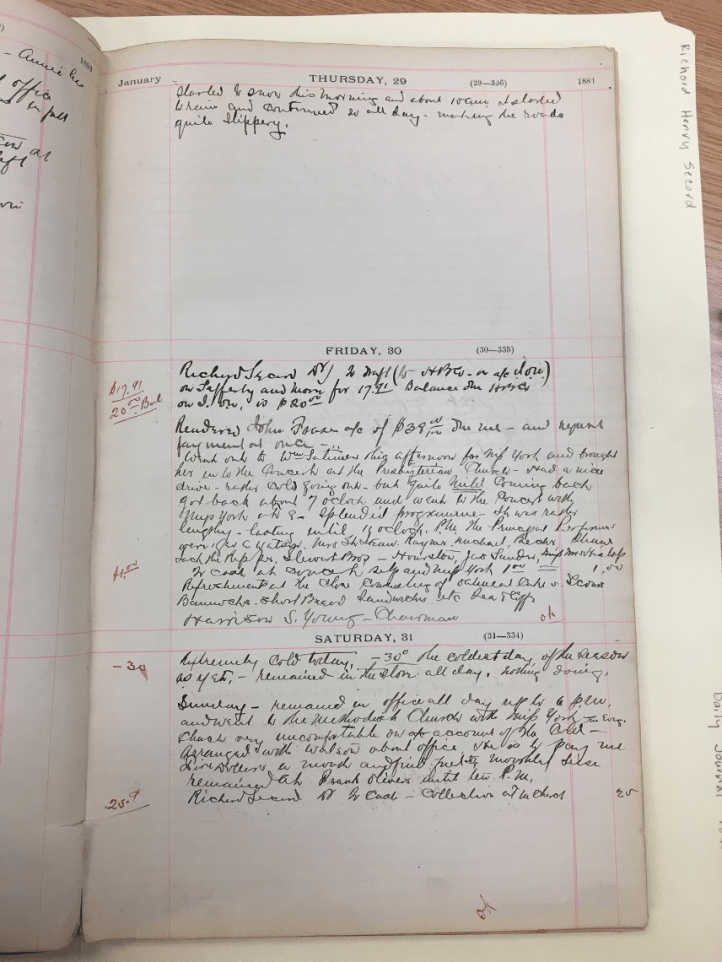 Annie
office
in full
at
left
January THURSDAY, 29 (29—336) 1881
Started to snow this morning and about 10 am it started
to rain and continued so all day - making the roads
quite slippery.
FRIDAY, 30 (30—335)
Richard Secord Dr / To Draft (to H B Co - on a/c store)
on Lafferty and Moore for 17.91 Balance due H B Co
on is $20.00
$17.91
20.00 Bal
Rendered John Fraser a/c of $38.00 due me - and request
payment at once -
Went out to Wm this afternoon for Miss York and brought
her in to the Concert at the Presbyterian Church - Had a nice
drive - rather cold going out - but quite mild coming back
got back about 7 oclock and went to the Concert with
Miss York at 8 - Splendid programme - It was rather
lengthy - lasting until 11 oclock P.M. The Principal Performers
were Geo C Watson, Mrs Raymer, Michael
Stewart Bros - Houston, Jas Sanders, Miss
To Cash at Concert self and Miss York 1.00 1.00
$1.00
Refreshments at the close consisting of oatmeal cake & Scones
Bannocks - Short Bread Sandwiches etc Tea & Coffee
Harrison S. Young - Chairman
ok
SATURDAY, 31 (31—334)
Extremely Cold today, -30° the coldest day of the season
as yet, - remained in the store all day, nothing doing.
-30
Sunday - remained in office all day up to 6 P.M.
and went to the Methodist Church with Miss York - Evng.
Church very uncomfortable on a/c account of the Cold -
Arranged with Watson about office, He is to pay me
Five Dollars a month and
remained at Frank Olivers until ten P.M.
Richard Secord Dr To Cash - Collection at M Church 25
.25
ok
Richard Henry Secord
Daily Journal